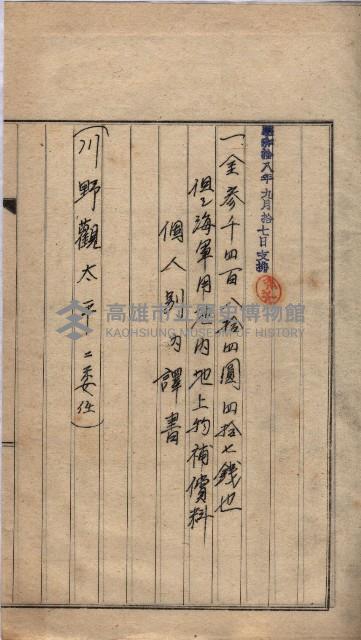 昭和拾八年九月拾七日支拂
一金參千四百八拾四圓四拾七錢也
但シ海軍用地内地上物補償料
個人別内譯書
(川野觀太 ニ委任)
高雄市立歷史博物館
KAOHSIUNG MUSEUM OF HISTORY